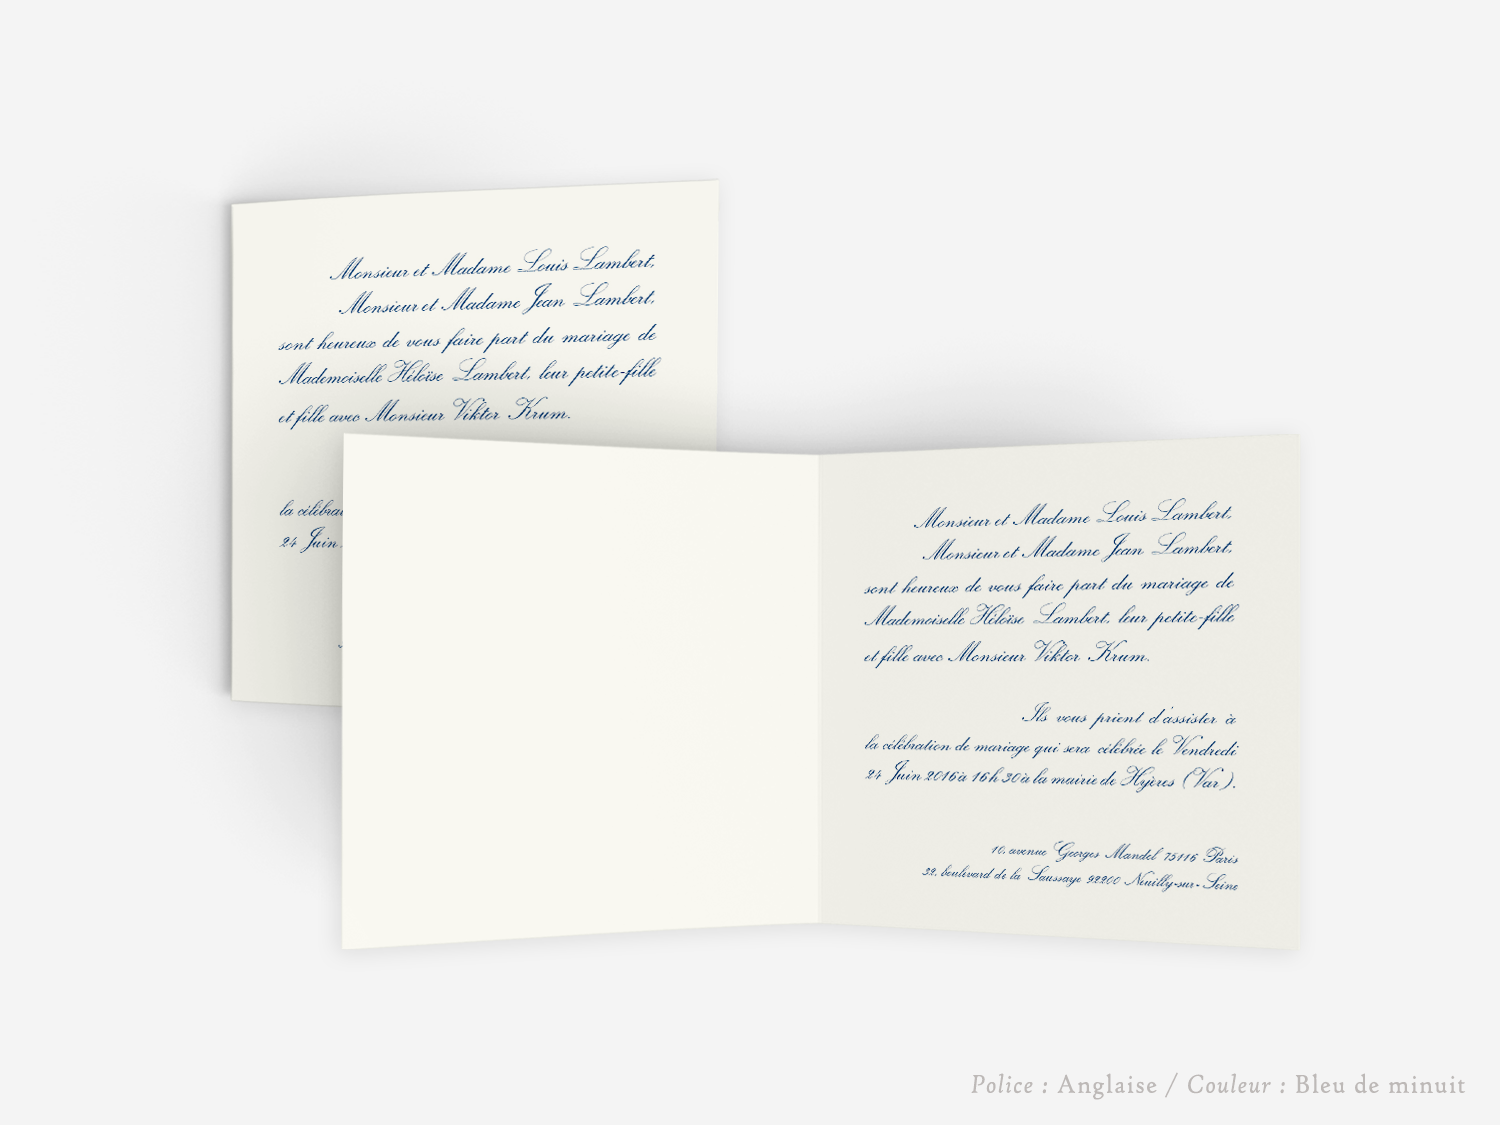 Monsieur et Madame Louis Lambert,
Monsieur et Madame Jean Lambert,
sont heureux de vous faire part du mariage de
Mademoiselle Héloïse Lambert, leur petite-fille
et fille avec Monsieur Viktor Krum.
la célébrat
24 Juin
Monsieur et Madame Louis Lambert,
Monsieur et Madame Jean Lambert,
sont heureux de vous faire part du mariage de
Mademoiselle Héloïse Lambert, leur petite-fille
et fille avec Monsieur Viktor Krum.
Ils vous prient d'assister à
la célébration de mariage qui sera célébrée le Vendredi
24 Juin 2016 à 16h30 à la mairie de Hyères (Var).
10, avenue Georges Mandel 75116 Paris
32, boulevard de la Saussaye 92200 Neuilly-sur-Seine
Police : Anglaise / Couleur : Bleu de minuit